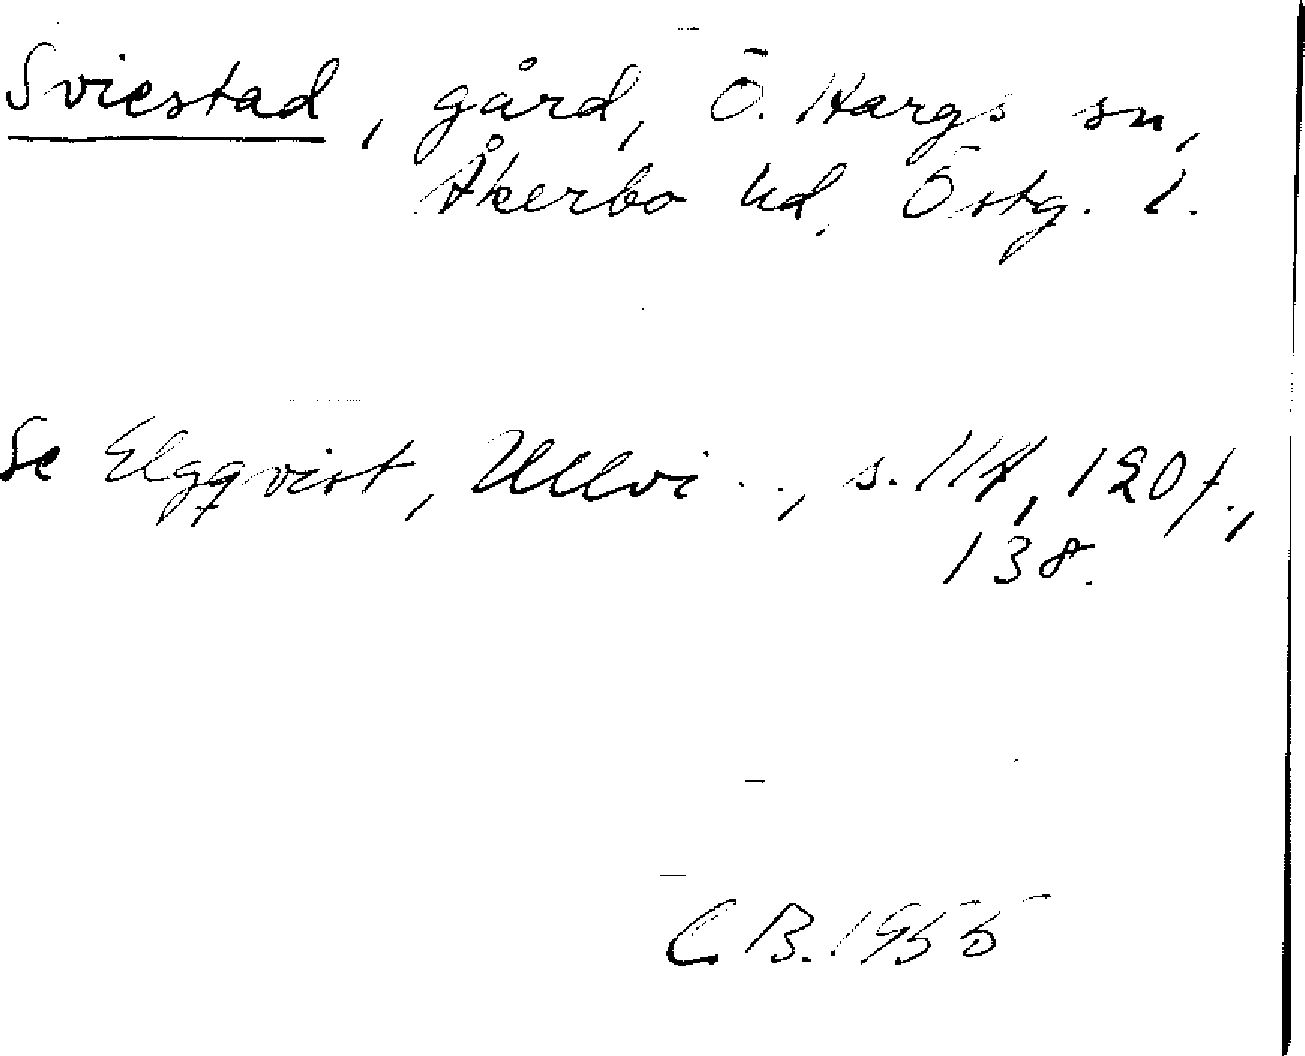 Sviestad, gård, Ö. Hargs sn,
Åkerbo hd, Östg. l.
Se Elgqvist, Ullvi . ., s. 118, 120 f.,
138.
C B. 1955